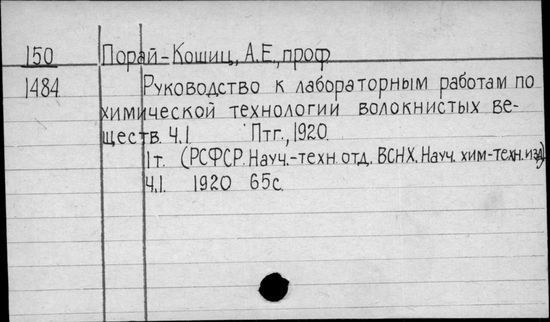 150 Порай-Кошиц, А.Е., проф
1484 Руководство к лабораторным работам по
химической технологии волокнистых ве-
ществ. Ч.1 Птг., 1920.
1т. (РСФСР. Науч.-техн отд. ВСНХ. Науч. хим-техн. изд)
Ч.1. 1920 65с.